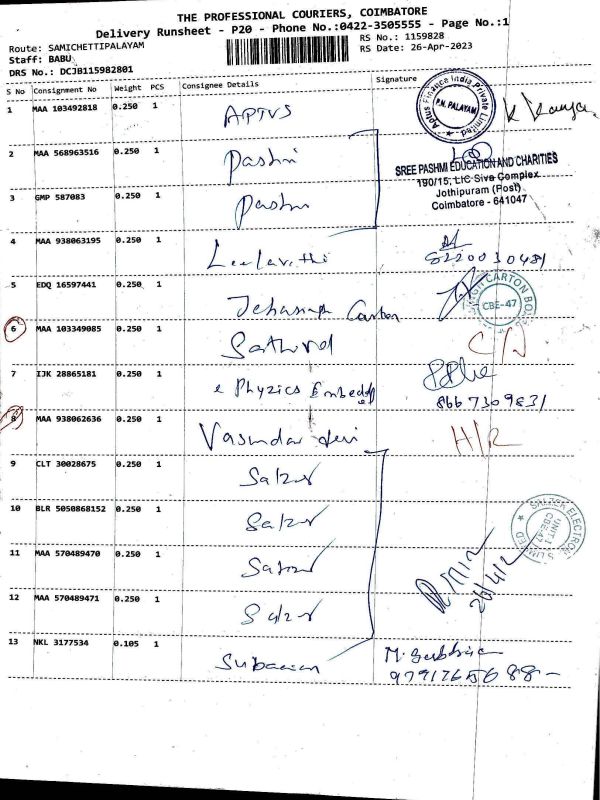 THE PROFESSIONAL COURIERS, COIMBATORE
Delivery Runsheet - P20 - Phone No.:0422-3505555 - Page No.:1
Route: SAMICHETTIPALAYAM
RS No.: 1159828
Staff: BABU
RS Date: 26-Apr-2023
DRS No.: DCJB115982801
S No Consignment No Weight PCS Consignee Details Signature
1 MAA 103492818 0.250 1 APTUS
Aptus Finance India Private Limited
P.N. PALAYAM
2 MAA 568963516 0.250 1 Pashmi
SREE PASHMI EDUCATION AND CHARITIES
190/15, LIC Siva Complex
Jothipuram (Post)
Coimbatore - 641047
3 GMP 587083 0.250 1 Pashmi
4 MAA 938063195 0.250 1 Leelavathi
8220030481
5 EDQ 16597441 0.250 1
CARTON BOX
CBE-47
6 MAA 103349085 0.250 1
7 IJK 28865181 0.250 1 e Phyzics Embedd
8667309831
8 MAA 938062636 0.250 1 Vasundar devi H/R
9 CLT 30028675 0.250 1 Salzer
10 BLR 5050868152 0.250 1 Salzer
SALZER ELECTRONICS LIMITED
UNIT 1
CBE-47
11 MAA 570489470 0.250 1 Salzer
26/4/2
12 MAA 570489471 0.250 1 Salzer
13 NKL 3177534 0.105 1